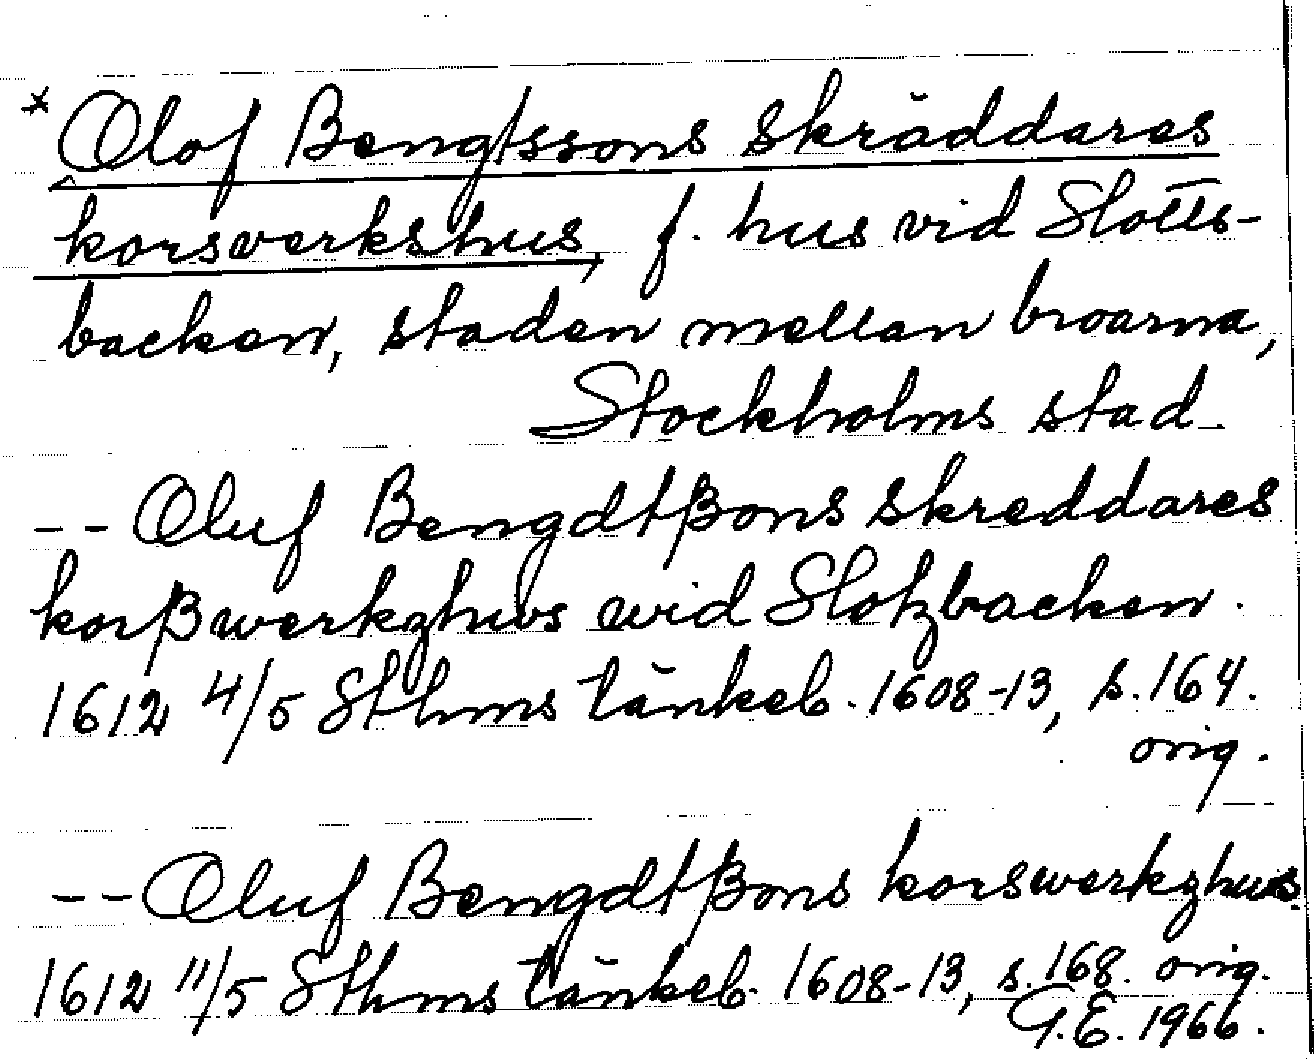 * Olof Bengtssons skräddares
korsverkshus, f. hus vid Slotts-
backen, staden mellan broarna,
Stockholms stad.
-- Oluf Bengdtßons skreddares
korßwerkzhws wid Slotzbacken.
1612 4/5 Sthms tänkeb. 1608-13, s. 164.
orig.
-- Oluf Bengdtßons korswerkzhus.
1612 11/5 Sthms tänkeb. 1608-13, s. 168. orig.
G.E. 1966.